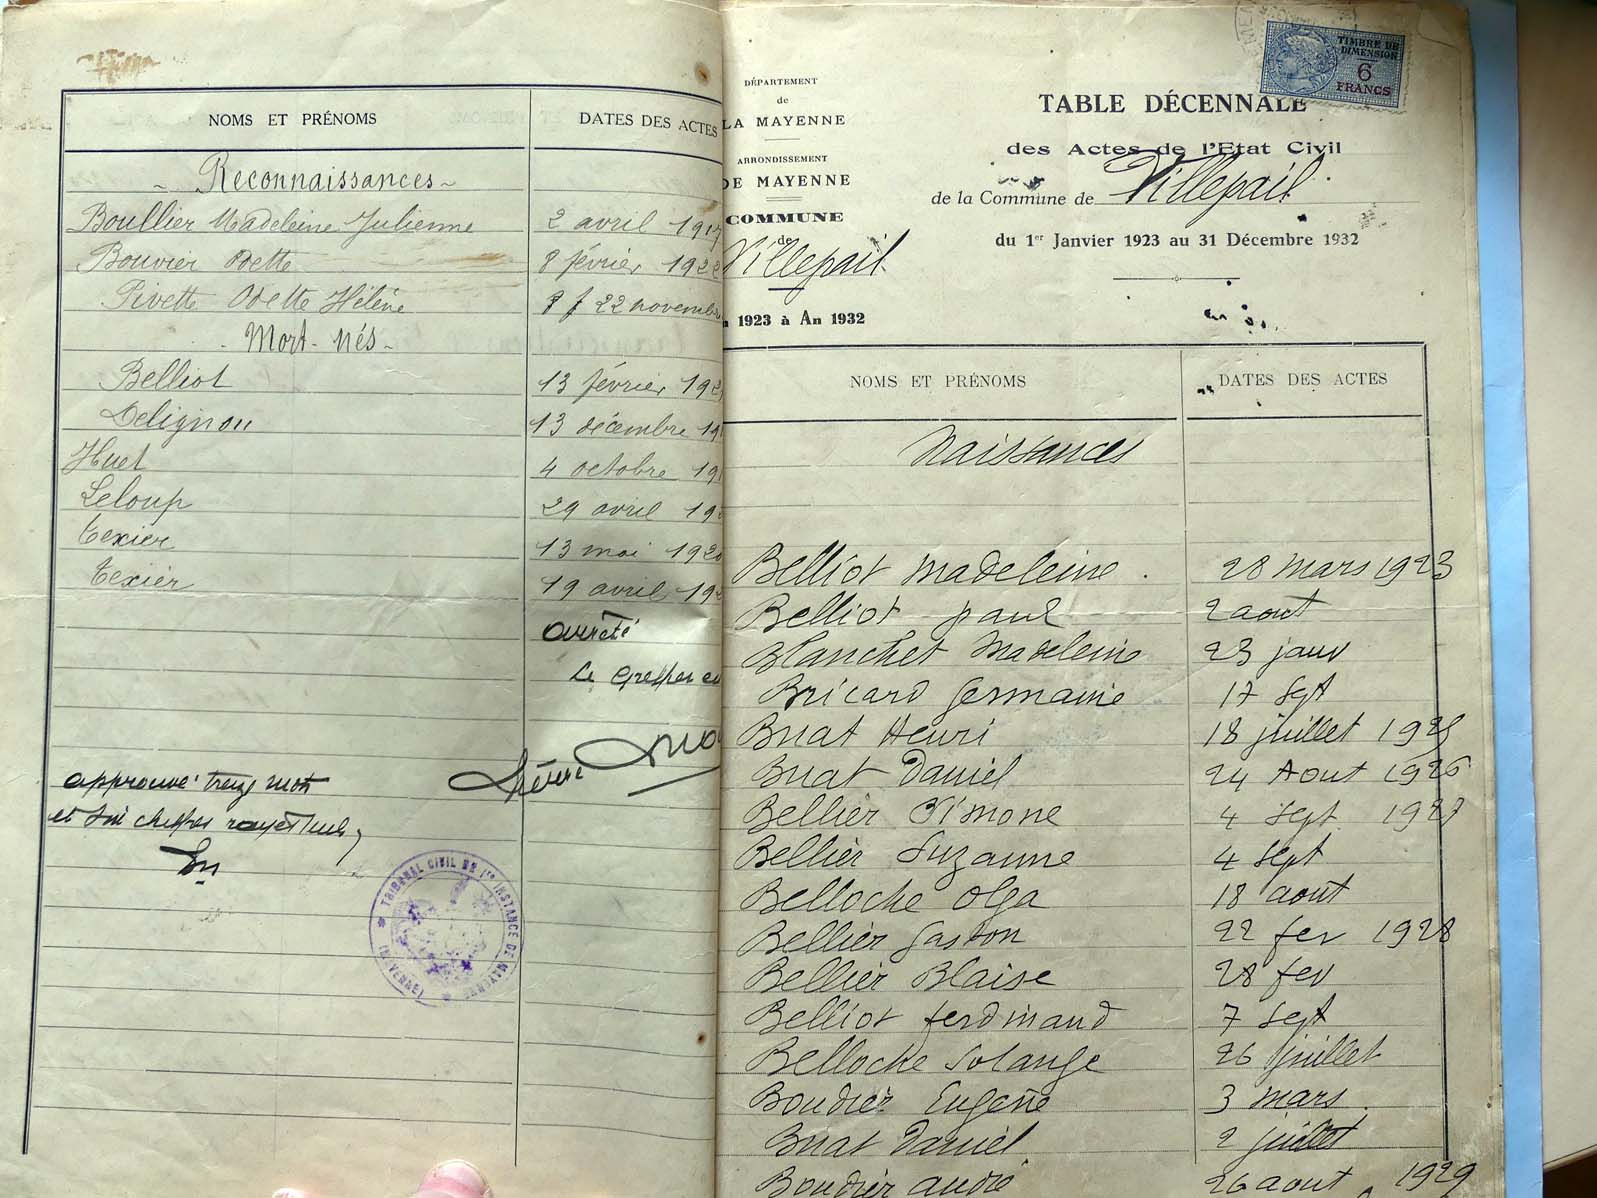 NOMS ET PRÉNOMS
DATES DES ACTES
Reconnaissances
Boullier Madeleine Julienne 2 avril 1917
Bouvier Odette 8 février 192
Pivette Odette Hélène 22 novemb
Mort-nés
Belliot 13 février 192
Delignou 13 décembre 19
Huet 4 octobre 19
Leloup 29 avril 19
Texier 13 mai 1920
Texier 19 avril 19
arrêté
Le Greffier
approuvé treize mots
et chiffres rayés nuls
TRIBUNAL CIVIL DE 1re INSTANCE DE MAYENNE
DÉPARTEMENT
de
LA MAYENNE
ARRONDISSEMENT
DE MAYENNE
COMMUNE
de
Villepail
1923 à An 1932
TIMBRE DE
DIMENSION
6
FRANCS
TABLE DÉCENNALE
des Actes de l'Etat Civil
de la Commune de Villepail
du 1er Janvier 1923 au 31 Décembre 1932
NOMS ET PRÉNOMS
DATES DES ACTES
Naissances
Belliot Madeleine 28 mars 1923
Belliot paul 2 aout
Blanchet Madeleine 23 janv
Bricard Germaine 17 Sept
Buat Henri 18 juillet 1925
Buat Daniel 24 Aout 1926
Bellier Simone 4 Sept 1927
Bellier Suzanne 4 Sept
Belloche Olga 18 aout
Bellier Gaston 22 fev 1928
Bellier Blaise 28 fev
Belliot ferdinand 7 Sept
Belloche Solange 26 juillet
Boudier Eugene 3 mars
Buat Daniel 2 juillet
Boudier andré 26 aout 1929